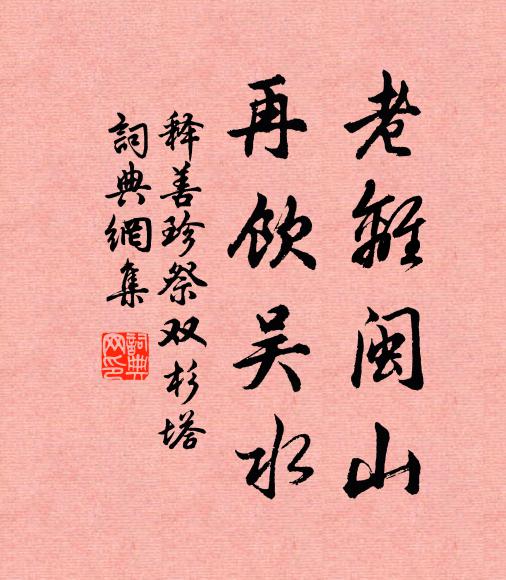 老離闽山
再飲吴水
释善珍祭双杉塔
詞典網集
詞典
网印